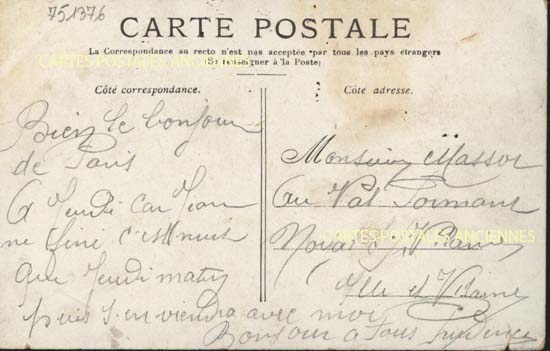 751376
CARTE POSTALE
La Correspondance au recto n'est pas acceptée par tous les pays étrangers
(Se renseigner à la Poste)
CARTES POSTALES ANCIENNES
Côté correspondance.
Côté adresse.
Bien le bonjour
de Paris
A Jeudi car Jean
ne c'est
que Jeudi matin
puis s'en viendra avec moi
Bonjour a tous
Monsieur Massot
au Val
CARTES POSTALES ANCIENNES
Noyal s/ Vilaine
Ille et Vilaine